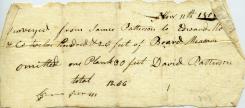 Nov 11th
Surveyed from James Patterson to Edward
& Co twelve Hundred & 26 feet of Board Measure
omitted one Plank 30 feet David Patterson
total 1256